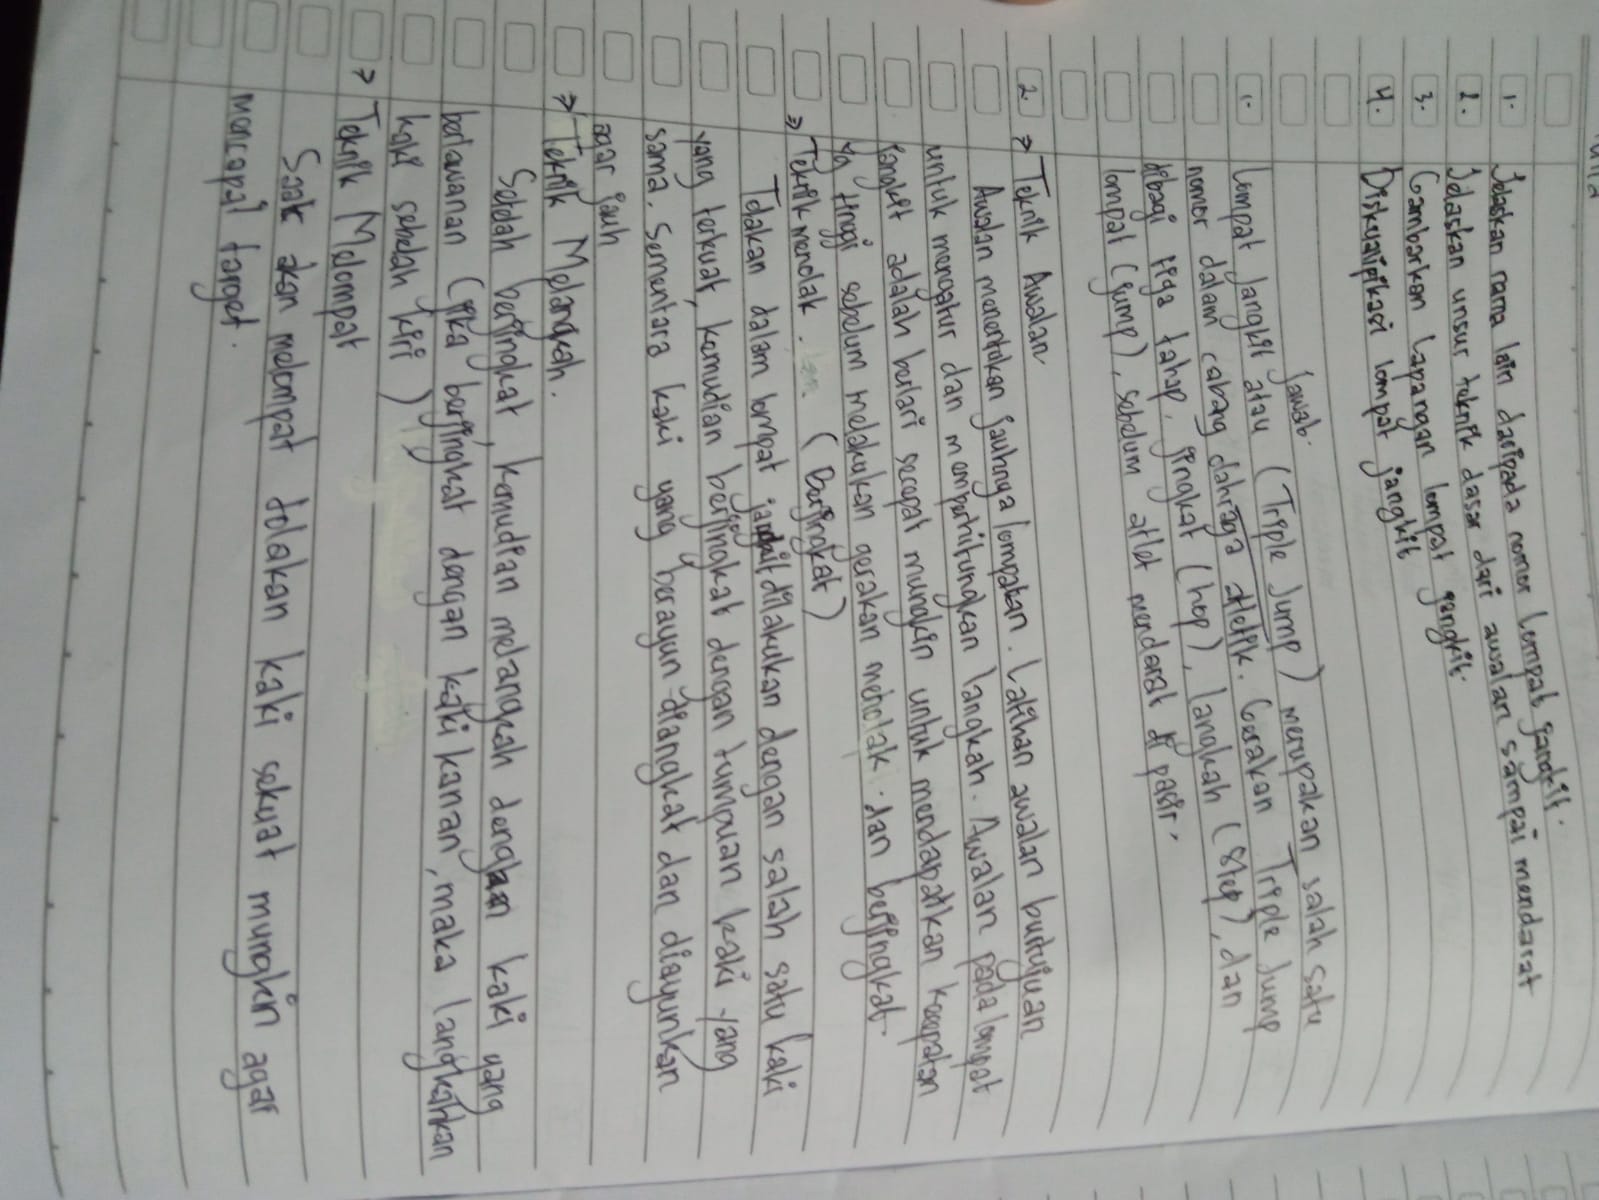 1. Jelaskan nama lain daripada nomor lompat jangkit.
2. Jelaskan unsur teknik dasar dari awalan sampai mendarat
3. Gambarkan lapangan lompat jangkit.
4. Diskualipikasi lompat jangkit
Jawab.
1. Lompat Jangkit atau (Triple Jump) merupakan salah satu
nomor dalam cabang olahraga atletik. Gerakan Triple Jump
dibagi tiga tahap, jingkat (hop), langkah (step), dan
lompat (jump), sebelum atlet mendarat di pasir.
2. => Teknik Awalan
Awalan menentukan jauhnya lompatan. Latihan awalan burtujuan
untuk mengatur dan memperhitungkan langkah. Awalan pada lompat
jangkit adalah berlari secepat mungkin untuk mendapatkan kecepatan
yg tinggi sebelum melakukan gerakan menolak dan berjingkat.
=> Teknik menolak. (Berjingkat)
Tolakan dalam lompat jangkit dilakukan dengan salah satu kaki
yang terkuat, kemudian berjingkat dengan tumpuan kaki yang
sama. Sementara kaki yang berayun diangkat dan diayunkan
agar jauh
=> Teknik Melangkah.
Setelah berjingkat, kemudian melangkah dengan kaki yang
berlawanan (jika berjingkat dengan kaki kanan, maka langkahkan
kaki sebelah kiri)
=> Teknik Melompat
Saat akan melompat tolakan kaki sekuat mungkin agar
mencapai target.